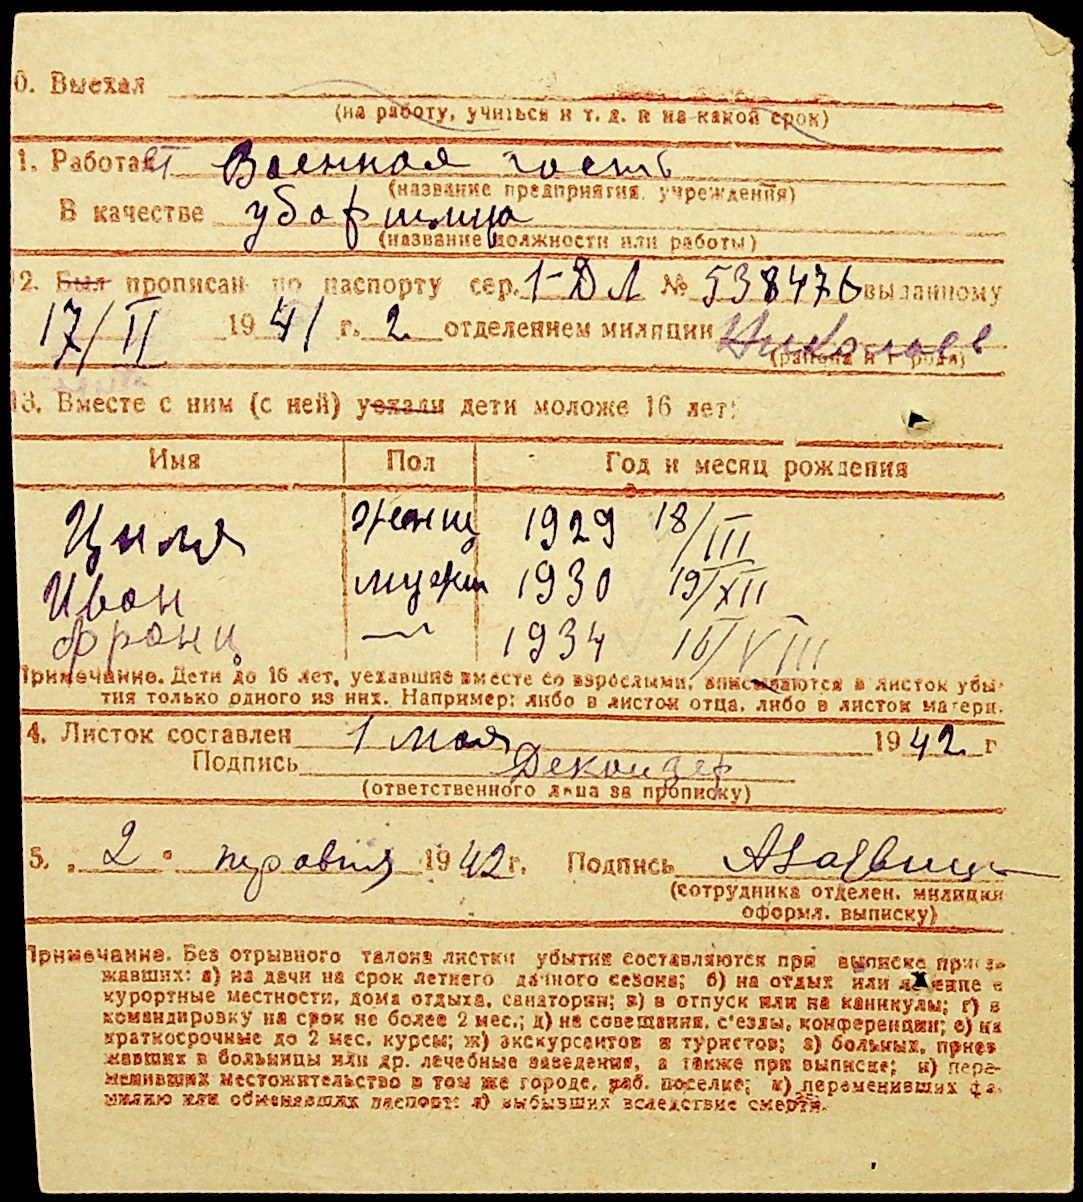 0. Выехал
(на работу, учиться и т. д. и на какой срок)
1. Работает Военная часть
(название предприятия, учреждения)
В качестве уборщица
(название должности или работы)
2. Был прописан по паспорту сер. 1-ДЛ № 538476 выданному
17/II 1941 г. 2 отделением милиции Николаев
(района и города)
13. Вместе с ним (с ней) уехали дети моложе 16 лет:
Имя Пол Год и месяц рождения
Циля женщ 1929 18/III
Иван мужч 1930 19/XII
Франц —〃— 1934 16/VIII
Примечание. Дети до 16 лет, уехавшие вместе со взрослыми, вписываются в листок убы-
тия только одного из них. Например: либо в листок отца, либо в листок матери.
4. Листок составлен 1 мая 1942 г
Подпись
(ответственного лица за прописку)
5. „2" 1942 г. Подпись
(сотрудника отделен. милиции
оформл. выписку)
Примечание. Без отрывного талона листки убытия составляются при выписке приез-
жавших: а) на дачи на срок летнего дачного сезона; б) на отдых или лечение в
курортные местности, дома отдыха, санатории; в) в отпуск или на каникулы; г) в
командировку на срок не более 2 мес.; д) на совещания, с'езды, конференции; е) на
краткосрочные до 2 мес. курсы; ж) экскурсантов и туристов; з) больных, приез
жавших в больницы или др. лечебные заведения, а также при выписке; и) пере-
менивших местожительство в том же городе, раб. поселке; к) переменивших фа-
милию или обменявших паспорт: л) выбывших вследствие смерти.